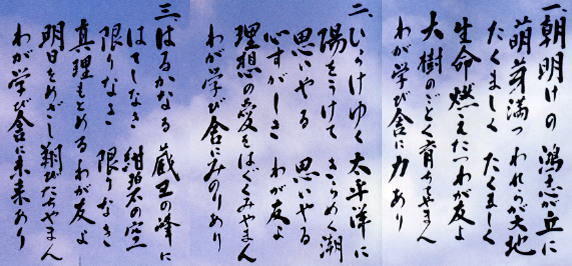 一、朝明けの 鴻志が丘に
萌芽満つ われらが大地
たくましく たくましく
生命燃えたつわが友よ
大樹のごとく育ちやまん
わが学び舎に力あり
二、ひらけゆく 太平洋に
陽をうけて きらめく潮
思いやる 思いやる
心すがしき わが友よ
理想の愛をはぐくみやまん
わが学び舎にみのりあり
三、はるかなる 蔵王の峰に
はてしなき 紺碧の空
限りなき 限りなき
真理もとめるわが友よ
明日をめざし翔びたちやまん
わが学び舎に未来あり